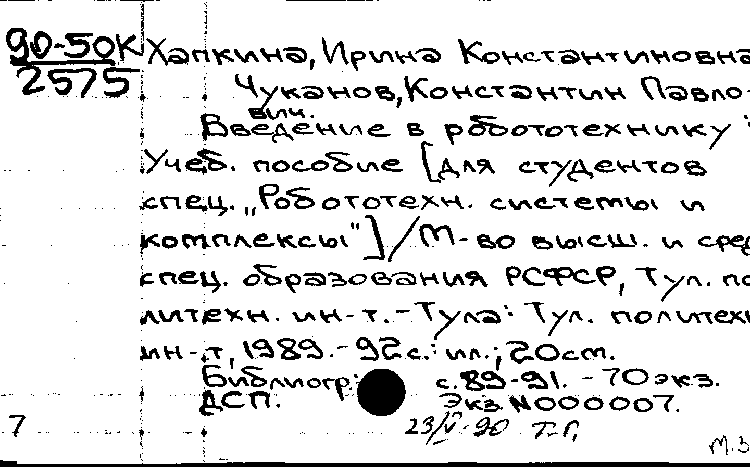 90-50К Хапкина, Ирина Константиновна
2575 Чуканов, Константин Павло-
вич.
Введение в робототехнику :
Учеб. пособие [для студентов
спец. „Робототехн. системы и
комплексы"] / М-во высш. и сред
спец. образования РСФСР, Тул. по
литехн. ин-т. - Тула: Тул. политехн
ин-т, 1989. - 92 с.: ил.; 20 см.
Библиогр: с. 89-91. - 70 экз.
ДСП. Экз N000007.
7 23/V-90 Т.Г.
М.З